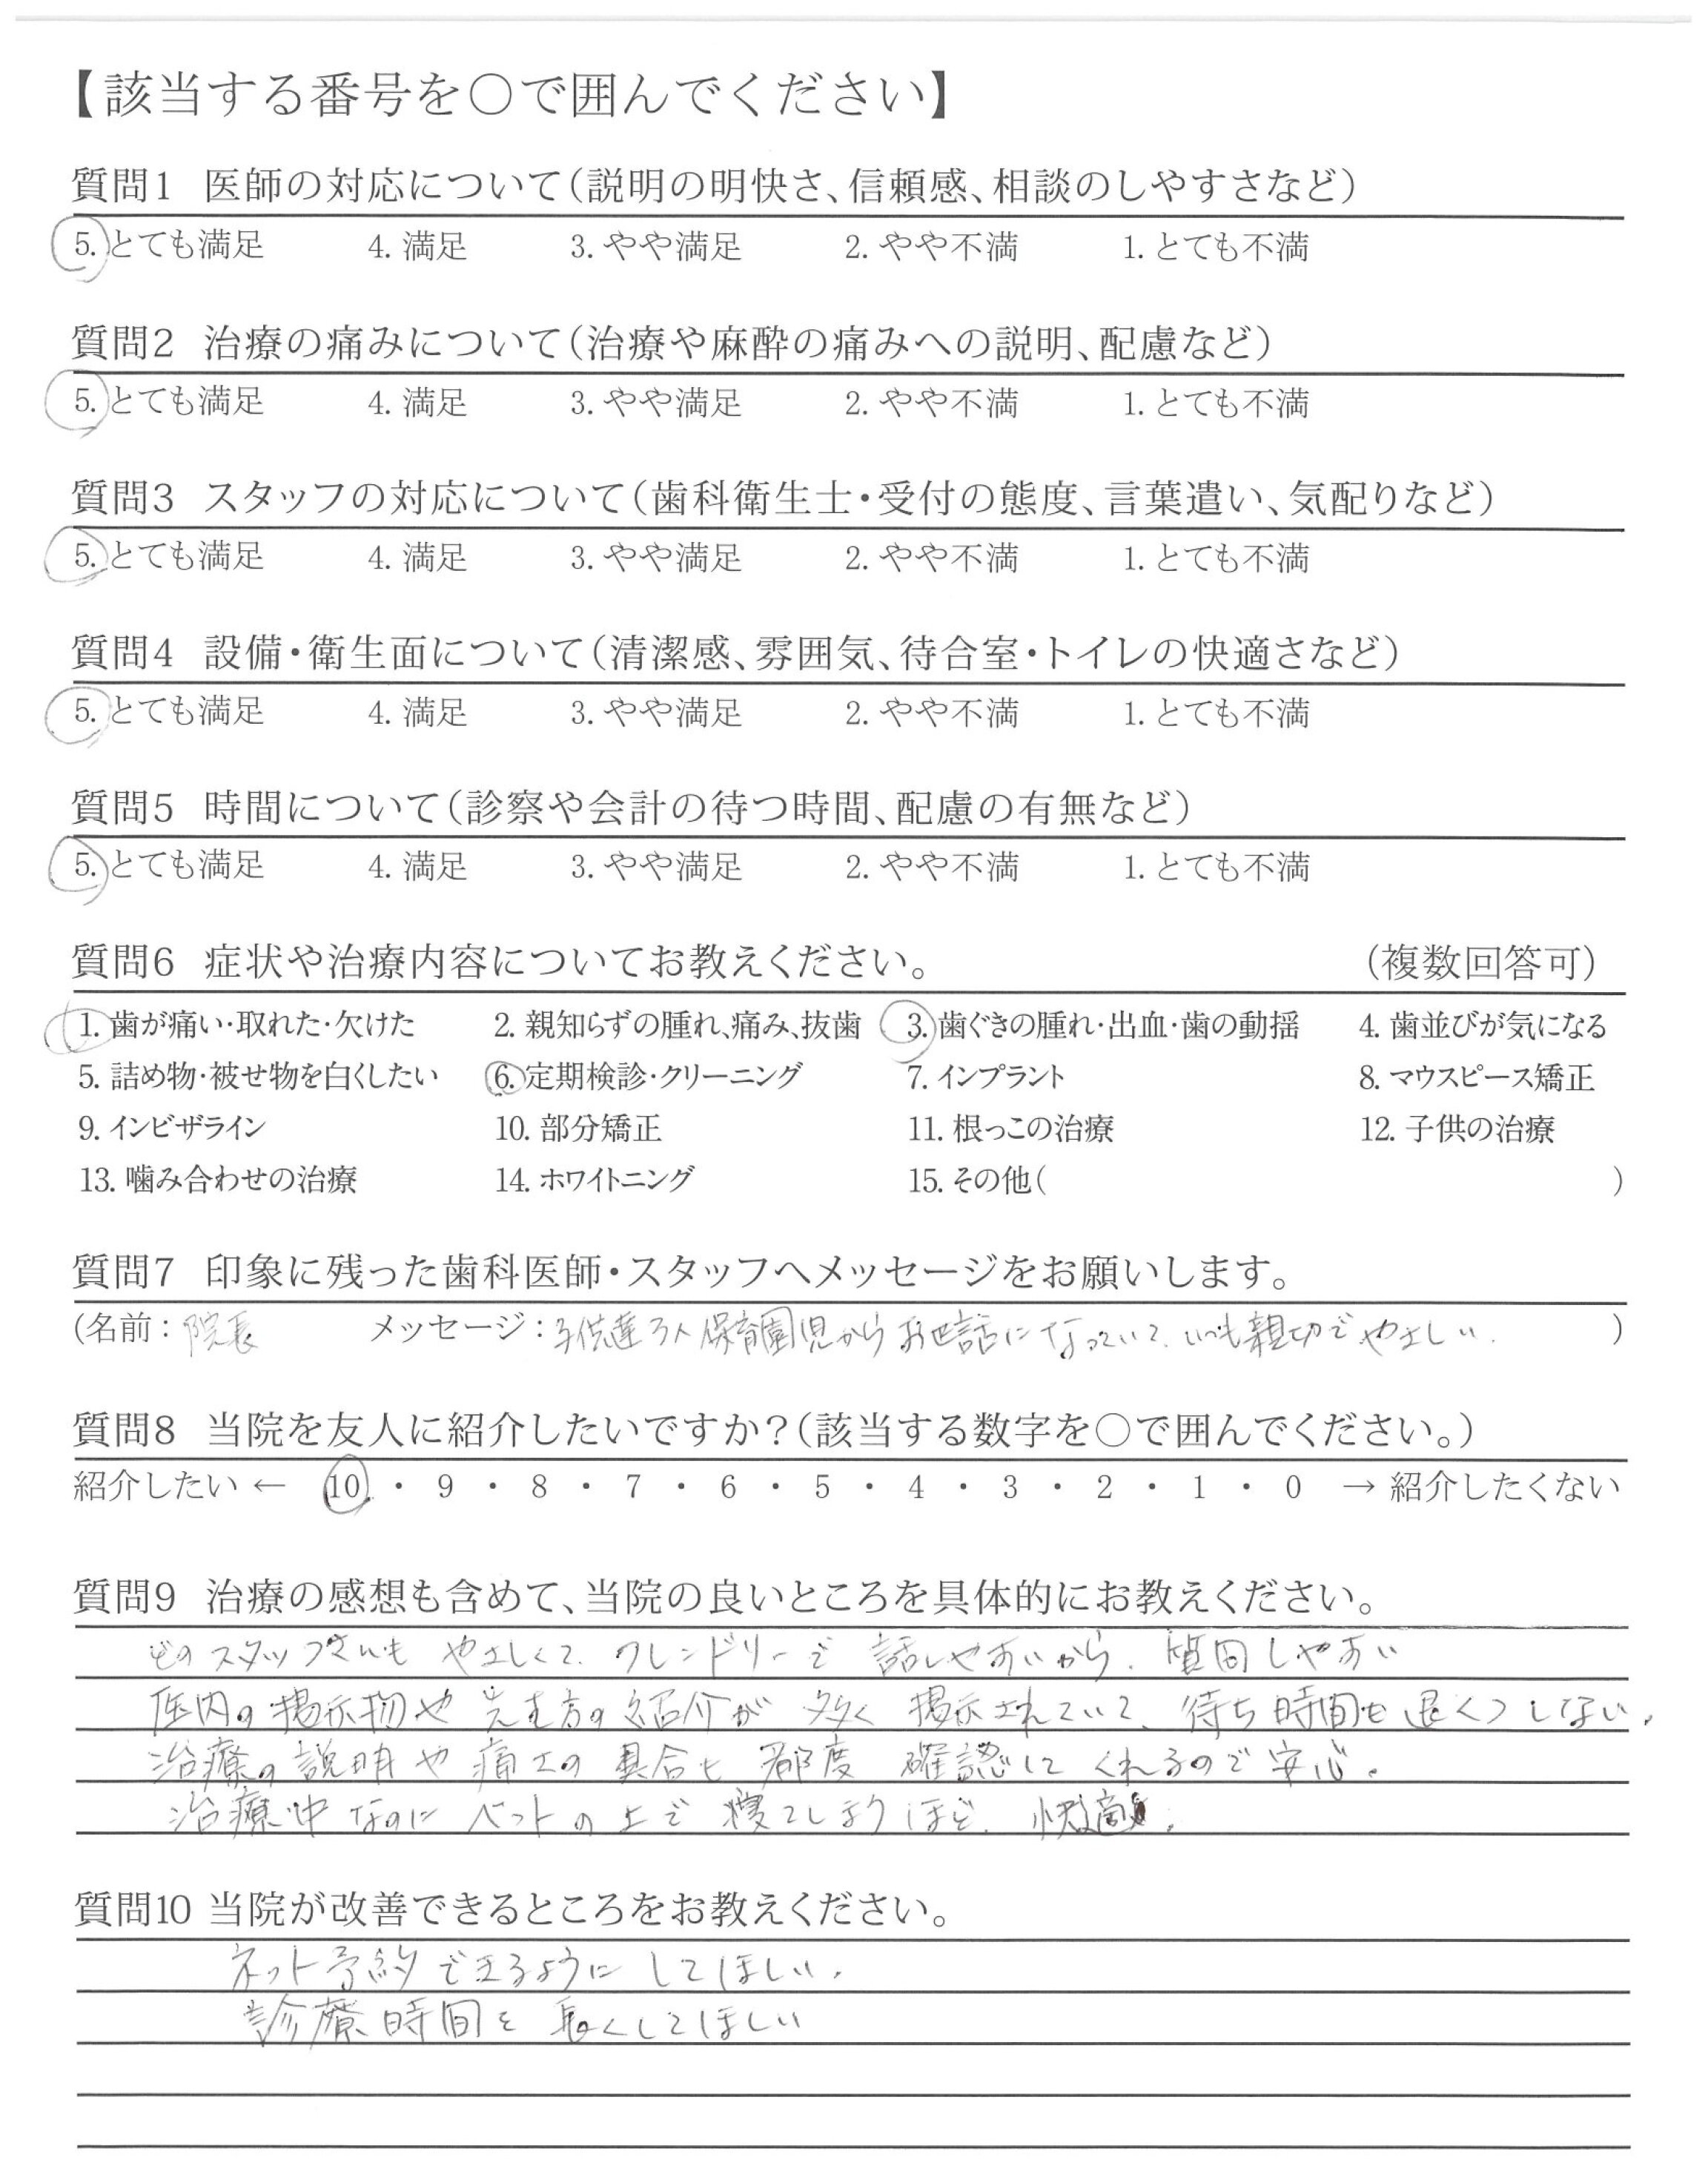 【該当する番号を○で囲んでください】
質問1 医師の対応について(説明の明快さ、信頼感、相談のしやすさなど)
5. とても満足 4. 満足 3. やや満足 2. やや不満 1. とても不満
質問2 治療の痛みについて(治療や麻酔の痛みへの説明、配慮など)
5. とても満足 4. 満足 3. やや満足 2. やや不満 1. とても不満
質問3 スタッフの対応について(歯科衛生士・受付の態度、言葉遣い、気配りなど)
5. とても満足 4. 満足 3. やや満足 2. やや不満 1. とても不満
質問4 設備・衛生面について(清潔感、雰囲気、待合室・トイレの快適さなど)
5. とても満足 4. 満足 3. やや満足 2. やや不満 1. とても不満
質問5 時間について(診察や会計の待つ時間、配慮の有無など)
5. とても満足 4. 満足 3. やや満足 2. やや不満 1. とても不満
質問6 症状や治療内容についてお教えください。 (複数回答可)
1. 歯が痛い・取れた・欠けた 2. 親知らずの腫れ、痛み、抜歯 3. 歯ぐきの腫れ・出血・歯の動揺 4. 歯並びが気になる
5. 詰め物・被せ物を白くしたい 6. 定期検診・クリーニング 7. インプラント 8. マウスピース矯正
9. インビザライン 10. 部分矯正 11. 根っこの治療 12. 子供の治療
13. 噛み合わせの治療 14. ホワイトニング 15. その他( )
質問7 印象に残った歯科医師・スタッフへメッセージをお願いします。
(名前：院長 メッセージ：子供達3人保育園児からお世話になっていて、いつも親切でやさしい。 )
質問8 当院を友人に紹介したいですか？(該当する数字を○で囲んでください。)
紹介したい ← 10 ・ 9 ・ 8 ・ 7 ・ 6 ・ 5 ・ 4 ・ 3 ・ 2 ・ 1 ・ 0 → 紹介したくない
質問9 治療の感想も含めて、当院の良いところを具体的にお教えください。
どのスタッフさんも やさしくて、フレンドリーで 話しやすいから、質問しやすい
医内の掲示物や 先生方の紹介が 多く 掲示されていて、待ち時間も退くつしない。
治療の説明や痛さの具合も都度 確認して くれるので安心。
治療中なのに ベットの上で 寝てしまうほど、快適。
質問10 当院が改善できるところをお教えください。
ネット予約できるように してほしい。
診療時間を 長くしてほしい